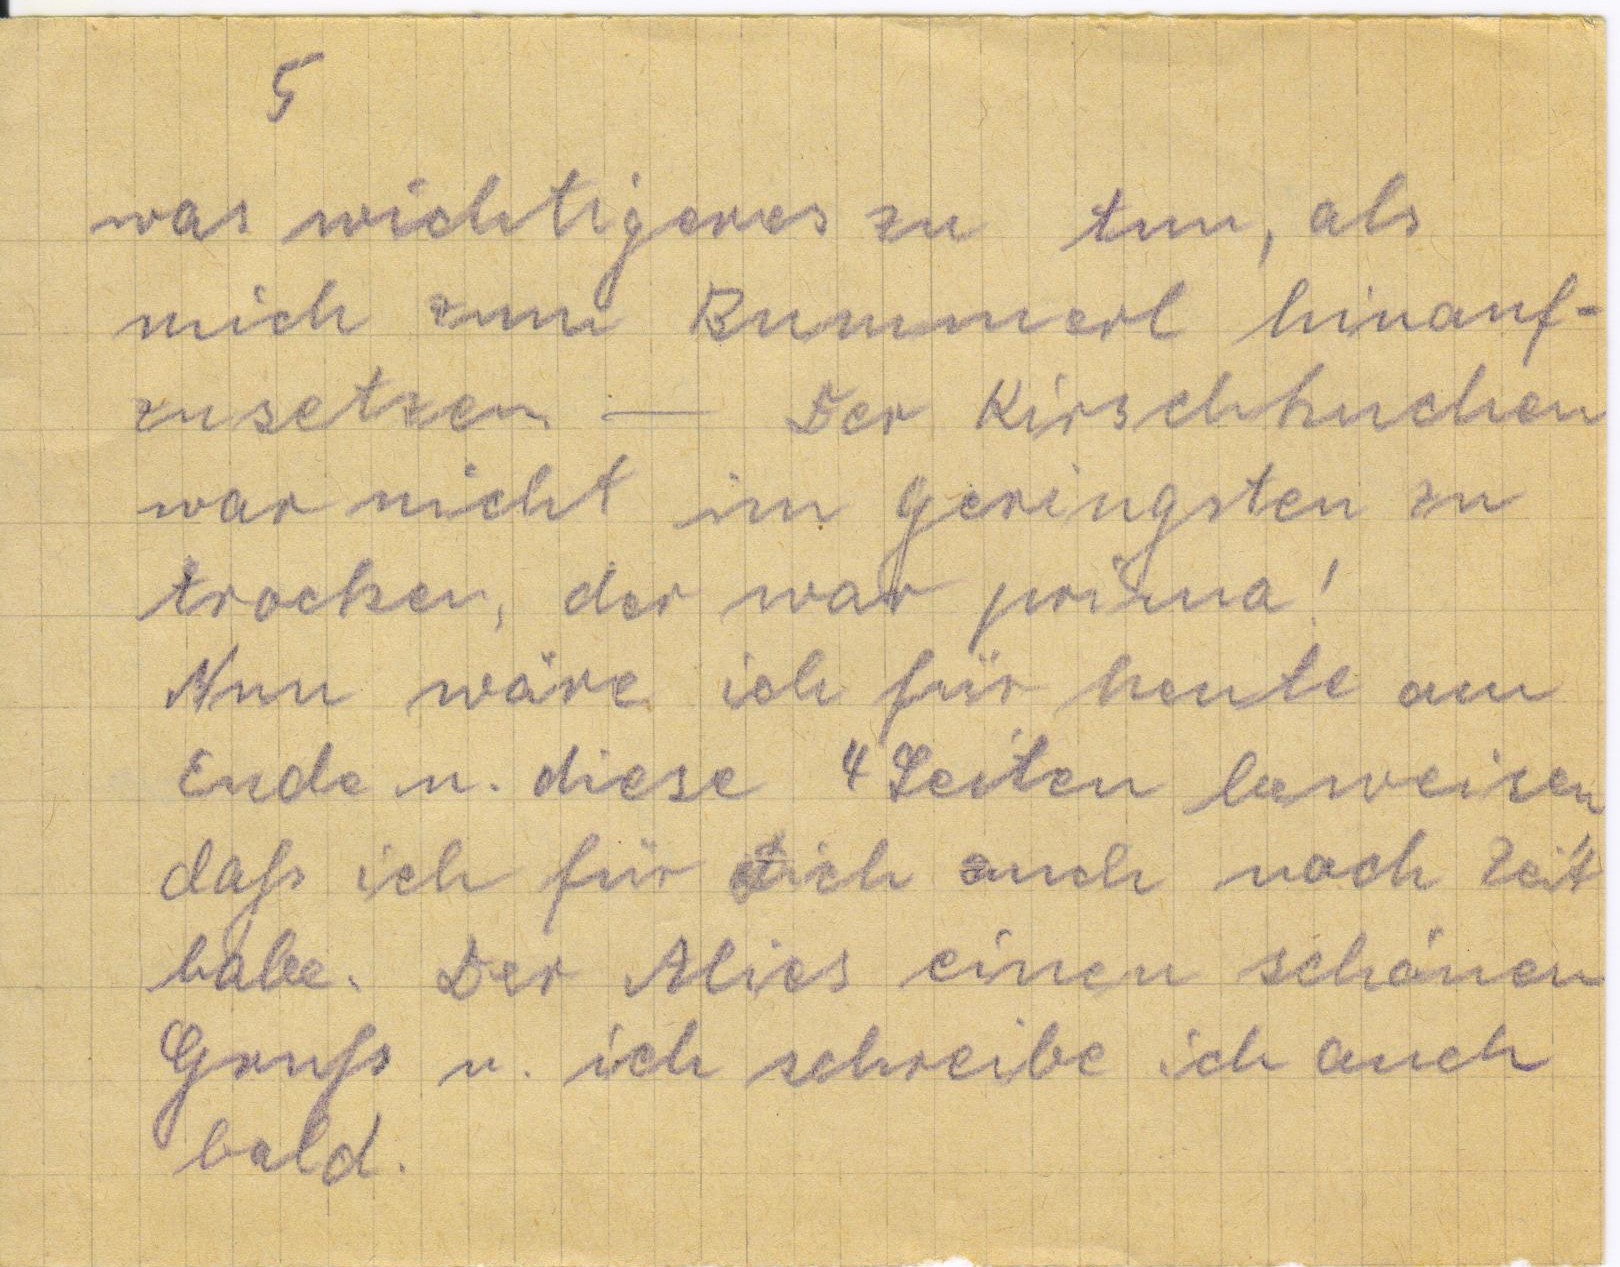 5
was wichtigeres zu tun, als
mich zum Bummerl hinauf-
zusetzen — Der Kirschkuchen
war nicht im geringsten zu
trocken, der war prima!
Nun wäre ich für heute am
Ende u. diese 4 Seiten beweisen
daß ich für Dich auch noch Zeit
habe. Der Alies einen schönen
Gruß u. ich schreibe ich auch
bald.